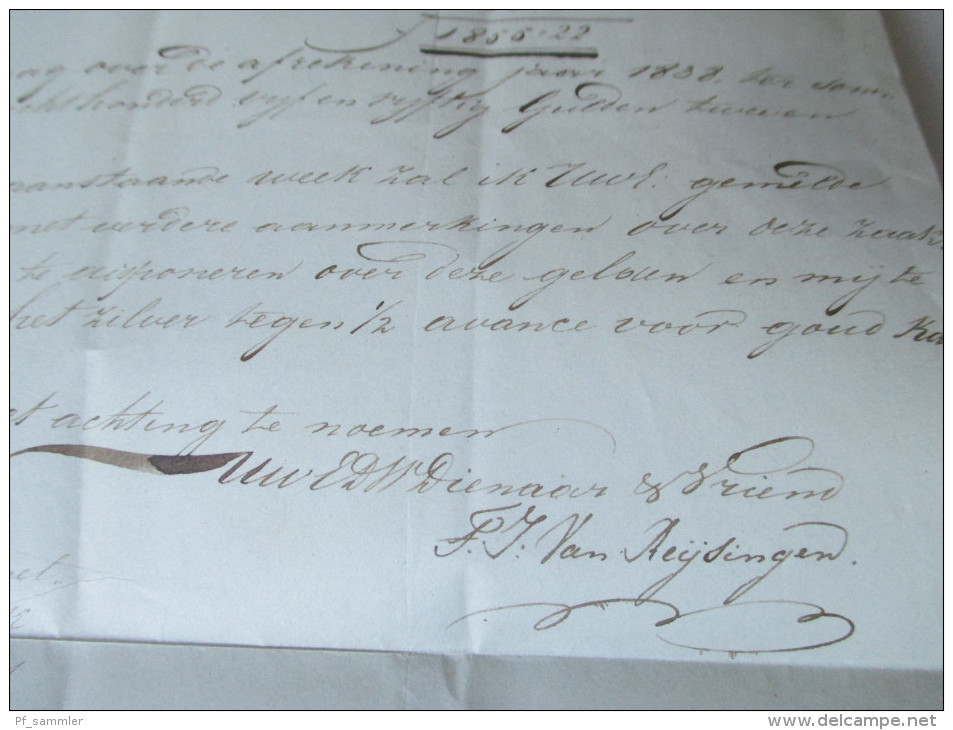 ƒ 1855.22
ag over de afrekening jaar 1838. ter som
chthonderd vyf en vyftig Gulden twee en
aanstaande week zal ik UwE. gemelde
met verdere aanmerkingen over deze zaak.
te disponeren over deze gelden en mij te
het zilver tegen 1/2 avance voor goud Ka
et achting te noemen
UwEDW Dienaar & Vriend
F. J. Van Reijsingen.
Pf_sammler
www.delcampe.net